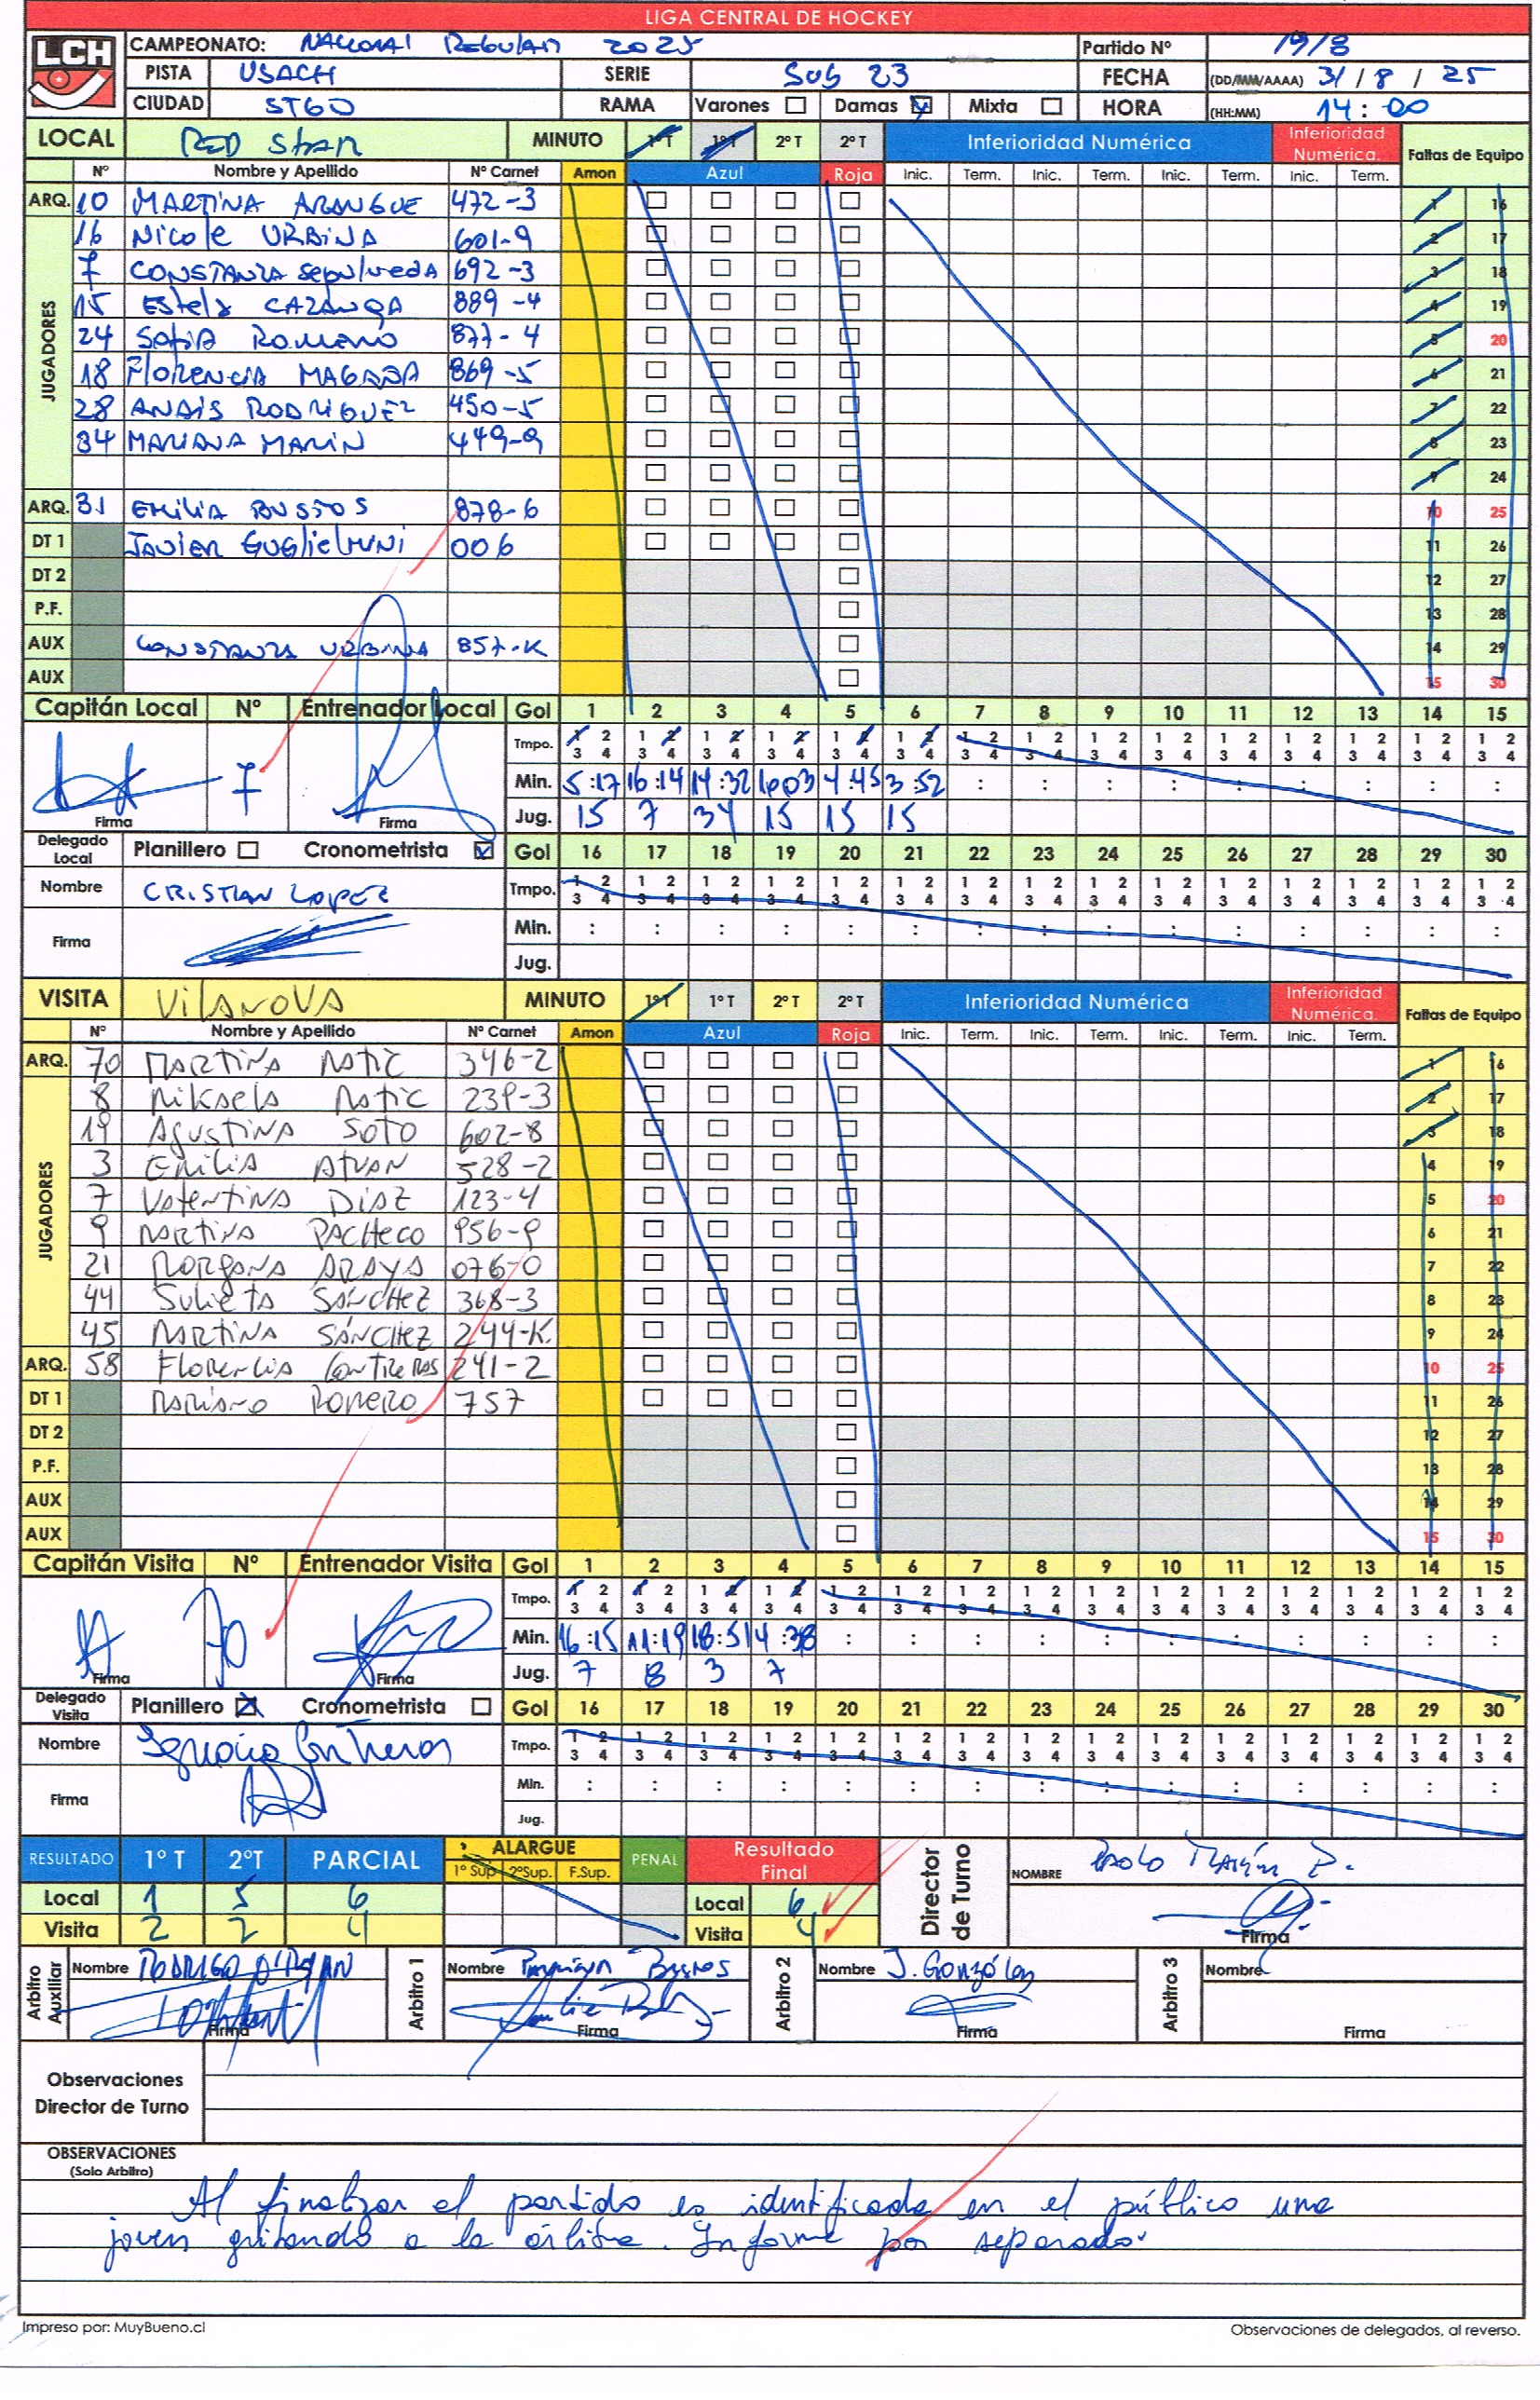 LIGA CENTRAL DE HOCKEY
LCH
CAMPEONATO: NACIONAL REGULAR 2025 Partido Nº 19/8
PISTA USACH SERIE SUB 23 FECHA (DD/MM/AAAA) 31 / 8 / 25
CIUDAD STGO RAMA Varones Damas Mixta HORA (HH:MM) 14:00
LOCAL RED STAR MINUTO 1º T 1º T 2º T 2º T Inferioridad Numérica Inferioridad Numérica. Faltas de Equipo
Nº Nombre y Apellido Nº Carnet Amon Azul Roja Inic. Term. Inic. Term. Inic. Term. Inic. Term.
JUGADORES
ARQ. 10 MARTINA ARANGUE 472-3 1 16
16 NICOLE URBINA 601-9 2 17
7 CONSTANZA SEPULVEDA 692-3 3 18
15 EStelA CAZANGA 889-4 4 19
24 SOfIA ROMERO 877-4 5 20
18 FLORENCIA MAGAÑA 869-5 6 21
28 ANAIS RODRIGUEZ 450-5 7 22
34 MARIANA MARIN 449-9 8 23
9 24
ARQ. 31 EMILIA BUSTOS 878-6 10 25
DT 1 JAVIER GUGLIELMINI 006 11 26
DT 2 12 27
P.F. 13 28
AUX CONSTANZA URBINA 857-K 14 29
AUX 15 30
Capitán Local Nº Entrenador Local Gol 1 2 3 4 5 6 7 8 9 10 11 12 13 14 15
Tmpo. 1 2 1 2 1 2 1 2 1 2 1 2 1 2 1 2 1 2 1 2 1 2 1 2 1 2 1 2 1 2
3 4 3 4 3 4 3 4 3 4 3 4 3 4 3 4 3 4 3 4 3 4 3 4 3 4 3 4 3 4
7 Min. 5:17 16:14 14:32 16:03 4:45 3:52 : : : : : : : : :
Firma Firma Jug. 15 7 34 15 15 15
Delegado Local Planillero Cronometrista Gol 16 17 18 19 20 21 22 23 24 25 26 27 28 29 30
Nombre CRISTIAN LOPEZ Tmpo. 1 2 1 2 1 2 1 2 1 2 1 2 1 2 1 2 1 2 1 2 1 2 1 2 1 2 1 2 1 2
3 4 3 4 3 4 3 4 3 4 3 4 3 4 3 4 3 4 3 4 3 4 3 4 3 4 3 4 3 4
Firma Min. : : : : : : : : : : : : : : :
Jug.
VISITA VILANOVA MINUTO 1º T 1º T 2º T 2º T Inferioridad Numérica Inferioridad Numérica. Faltas de Equipo
Nº Nombre y Apellido Nº Carnet Amon Azul Roja Inic. Term. Inic. Term. Inic. Term. Inic. Term.
JUGADORES
ARQ. 70 MARTINA MATIC 346-2 1 16
8 MIKAELA MATIC 239-3 2 17
19 AGUSTINA SOTO 602-8 3 18
3 EMILIA ATUAN 528-2 4 19
7 VALENTINA DIAZ 123-4 5 20
9 MARTINA PACHECO 956-9 6 21
21 MORGANA ARAYA 076-0 7 22
44 JULIETA SÁNCHEZ 368-3 8 23
45 MARTINA SÁNCHEZ 244-K. 9 24
ARQ. 58 FLORENCIA CONTRERAS 241-2 10 25
DT 1 MARIANO ROMERO 757 11 26
DT 2 12 27
P.F. 13 28
AUX 14 29
AUX 15 30
Capitán Visita Nº Entrenador Visita Gol 1 2 3 4 5 6 7 8 9 10 11 12 13 14 15
Tmpo. 1 2 1 2 1 2 1 2 1 2 1 2 1 2 1 2 1 2 1 2 1 2 1 2 1 2 1 2 1 2
3 4 3 4 3 4 3 4 3 4 3 4 3 4 3 4 3 4 3 4 3 4 3 4 3 4 3 4 3 4
70 Min. 16:15 11:19 18:51 4:38 : : : : : : : : : : :
Firma Firma Jug. 7 8 3 7
Delegado Visita Planillero Cronometrista Gol 16 17 18 19 20 21 22 23 24 25 26 27 28 29 30
Nombre Ignacio Contreras Tmpo. 1 2 1 2 1 2 1 2 1 2 1 2 1 2 1 2 1 2 1 2 1 2 1 2 1 2 1 2 1 2
3 4 3 4 3 4 3 4 3 4 3 4 3 4 3 4 3 4 3 4 3 4 3 4 3 4 3 4 3 4
Firma Min. : : : : : : : : : : : : : : :
Jug.
RESULTADO 1º T 2ºT PARCIAL ALARGUE 1º Sup 2ºSup. F.Sup. PENAL Resultado Final Director de Turno NOMBRE PAOLO MARÍN P.
Local 1 5 6 Local 6
Visita 2 2 4 Visita 4 Firma
Arbitro Auxiliar Nombre RODRIGO O'RYAN Arbitro 1 Nombre Bustos Arbitro 2 Nombre J. González Arbitro 3 Nombre
Firma Firma Firma Firma
Observaciones
Director de Turno
OBSERVACIONES
(Solo Arbitro)
Al finalizar el partido es identificada en el público una
joven gritando a la árbitra. Informe por separado.
Impreso por: MuyBueno.cl Observaciones de delegados, al reverso.